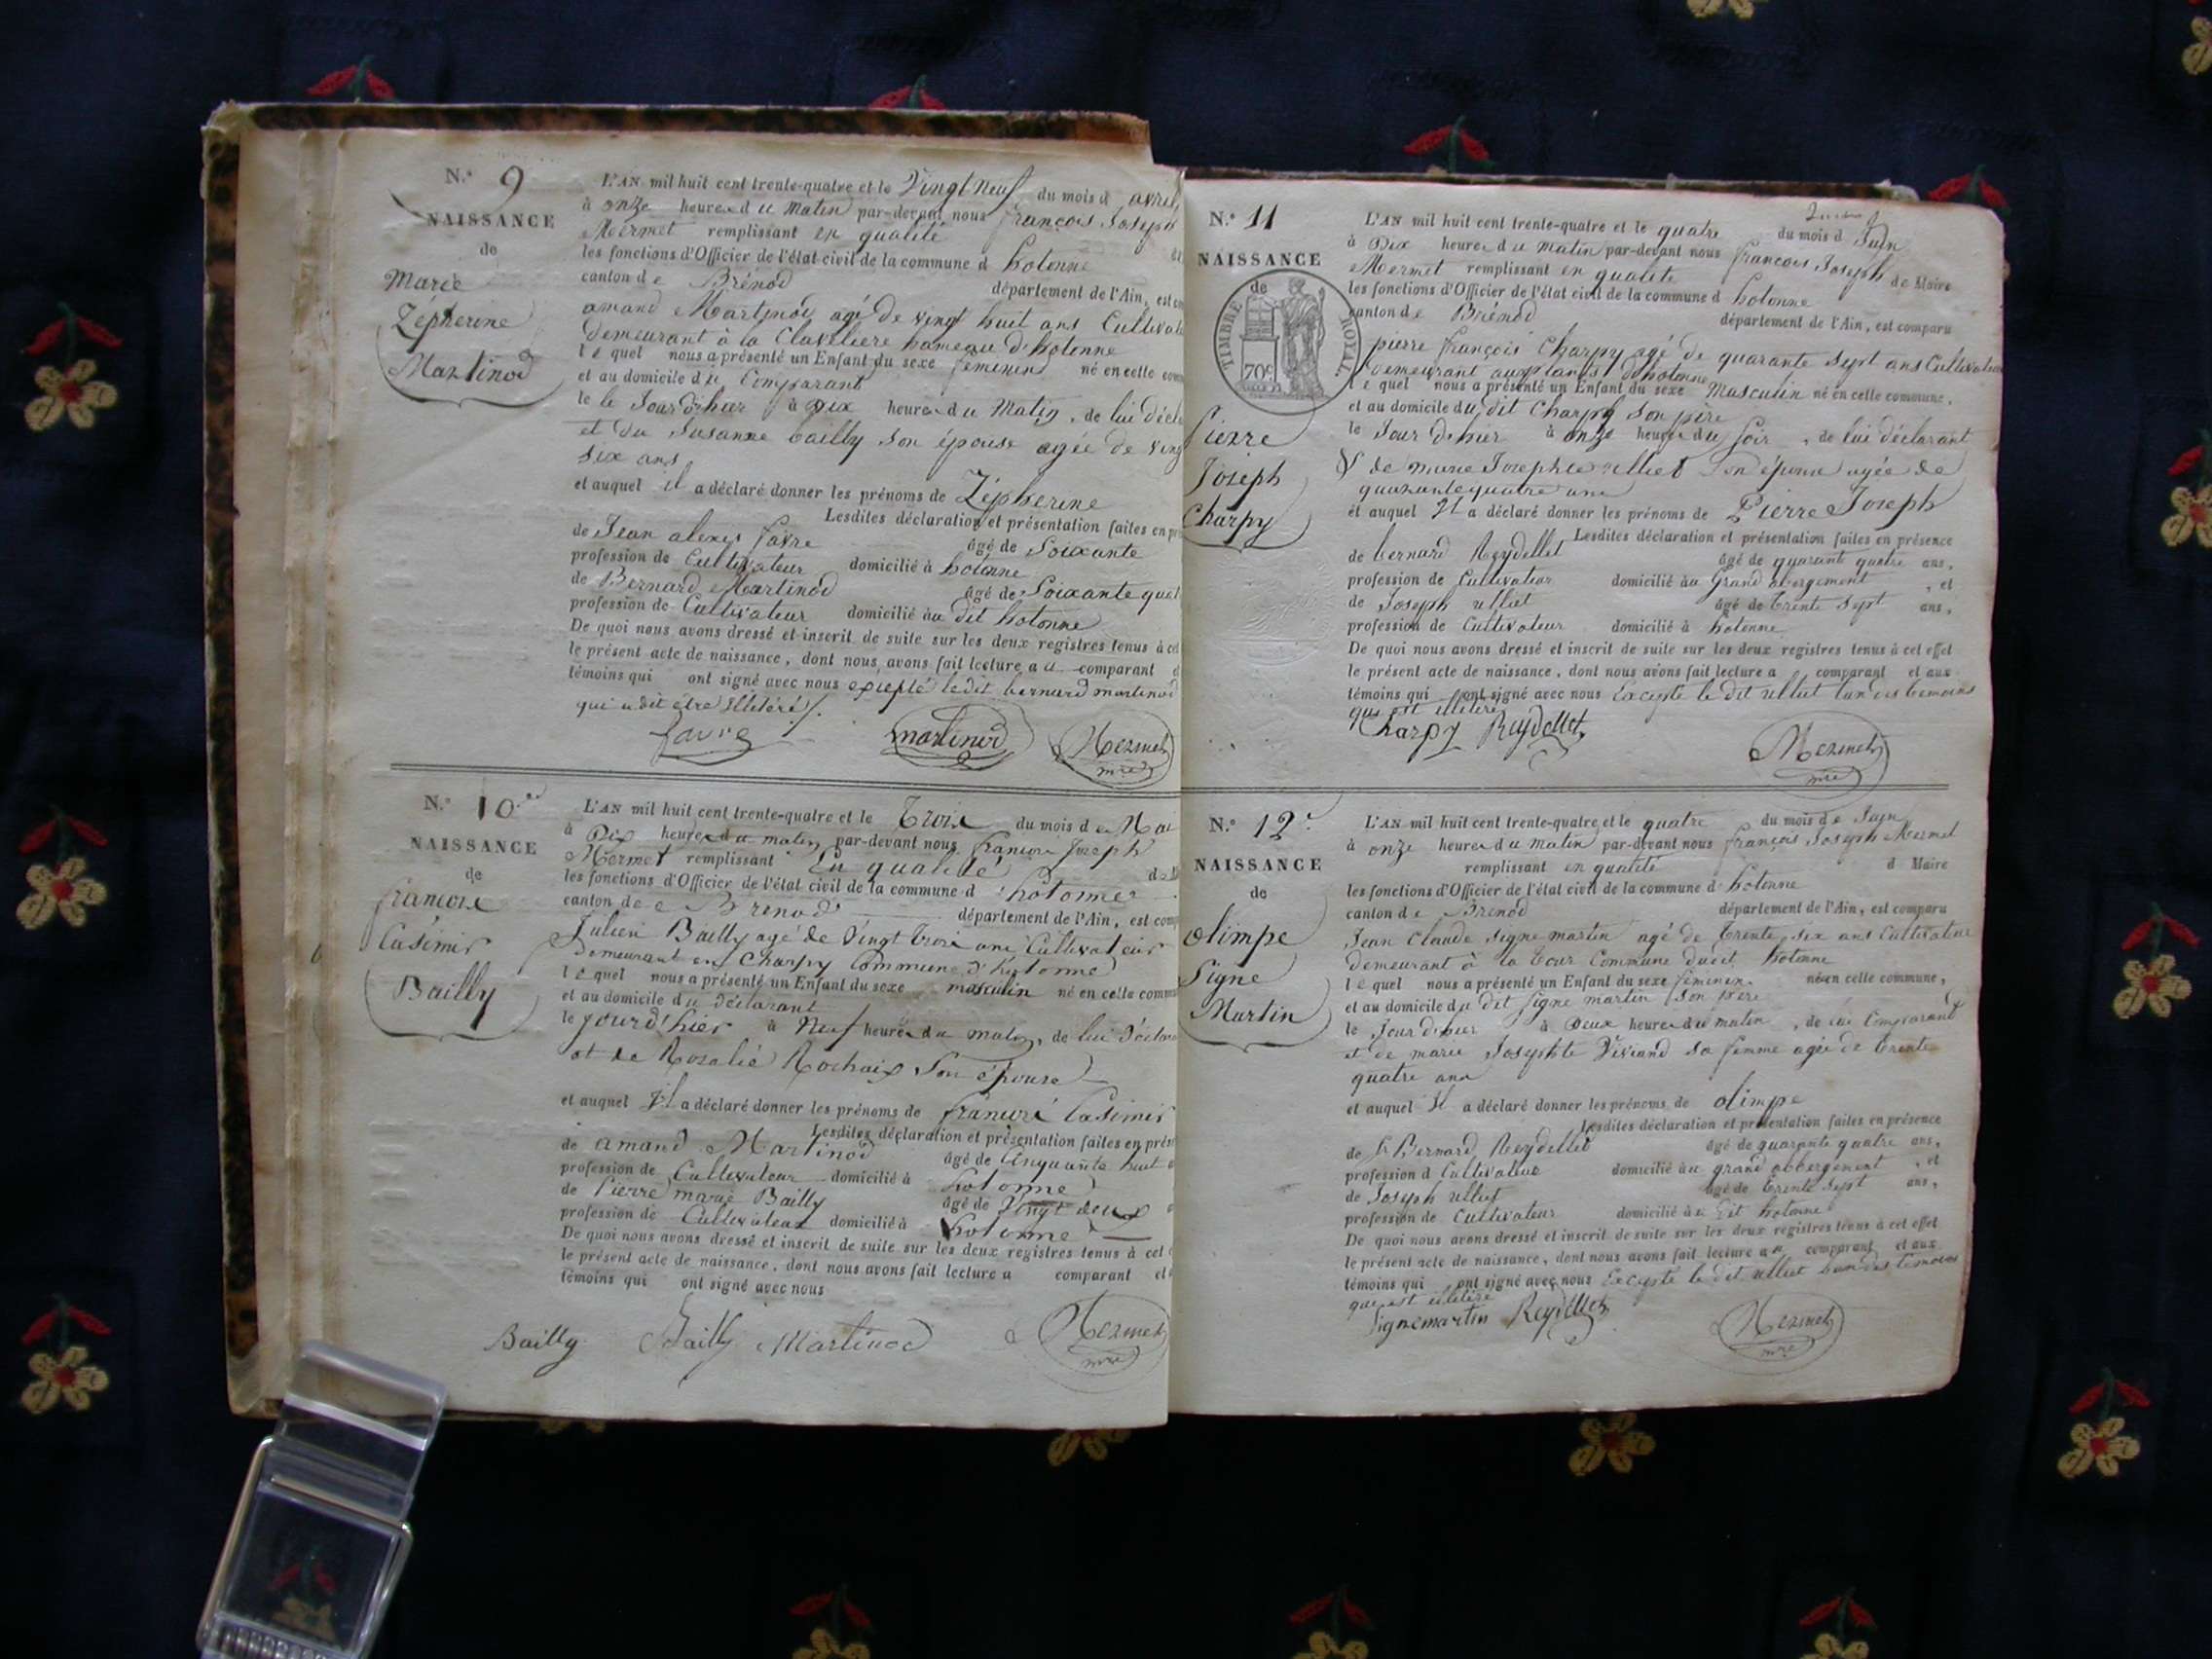 N.º 9
NAISSANCE
de
Marie
Zépherine
Martinod
L'AN mil huit cent trente-quatre et le Vingt Neuf du mois d avril
à onze heures du Matin par-devant nous françois Joseph
Mermet remplissant en qualité
les fonctions d'Officier de l'état civil de la commune d hotonne
canton de Brénod département de l'Ain, est com
amand Martinod agé de vingt huit ans Cultivat
Demeurant à la Claveliere hameau d'hotonne
lequel nous a présenté un Enfant du sexe femenin né en cette com
et au domicile du Comparant
le le Jour d'hier à Dix heures du Matin, de lui décla
et du Susanne bailly son épouse agée de ving
six ans
et auquel il a déclaré donner les prénoms de Zépherine
Lesdites déclaration et présentation faites en pré
de Jean alexis favre âgé de Soixante
profession de Cultivateur domicilié à hotonne
de Bernard Martinod âgé de Soixante quat
profession de Cultivateur domicilié au dit hotonne
De quoi nous avons dressé et inscrit de suite sur les deux registres tenus à cet
le présent acte de naissance, dont nous avons fait lecture a u comparant e
témoins qui ont signé avec nous excepté ledit bernard martinod
qui a dit être illitéré
favre martinod Mermet
mre
N.º 10
NAISSANCE
de
francois
Casimir
Bailly
L'AN mil huit cent trente-quatre et le Trois du mois de Mai
à Dix heures du matin par-devant nous francois Joseph
Mermet remplissant En qualité de
les fonctions d'Officier de l'état civil de la commune d hotonne
canton de Brenod département de l'Ain, est comp
Julien Bailly agé de Vingt Trois ans Cultivateur
Demeurant en Charpy Commune d'hotonne
lequel nous a présenté un Enfant du sexe masculin né en cette commu
et au domicile du Déclarant
le jour d'hier à Neuf heures du matin, de lui Déclara
et de Rozalie Rochaix Son épouse
et auquel Il a déclaré donner les prénoms de francoi Casimir
Lesdites déclaration et présentation faites en prése
de amand Martinod âgé de Cinquante huit
profession de Cultivateur domicilié à hotonne
de Pierre marie Bailly âgé de Vingt deux
profession de Cultivateur domicilié à hotonne
De quoi nous avons dressé et inscrit de suite sur les deux registres tenus à cet
le présent acte de naissance, dont nous avons fait lecture a comparant et
témoins qui ont signé avec nous
Bailly Bailly Martinod Mermet
mre
N.º 11
NAISSANCE
de
TIMBRE ROYAL
70c
Pierre
Joseph
Charpy
L'AN mil huit cent trente-quatre et le quatre du mois d Juin
à Dix heures du matin par-devant nous francois Joseph
Mermet remplissant en qualité de Maire
les fonctions d'Officier de l'état civil de la commune d hotonne
canton de Brénod département de l'Ain, est comparu
pierre françois Charpy agé de quarante Sept ans Cultivateur
Demeurant aux d'hotonne
lequel nous a présenté un Enfant du sexe Masculin né en cette commune,
et au domicile du dit Charpy Son père
le Jour d'hier à onze heures du Soir, de lui déclarant
& de marie Josephte ulliet Son épouse agée de
quarante quatre ans
et auquel Il a déclaré donner les prénoms de Pierre Joseph
Lesdites déclaration et présentation faites en présence
de bernard Reydellet âgé de quarant quatre ans,
profession de Cultivateur domicilié au Grand abergement, et
de Joseph ulliet âgé de trente Sept ans,
profession de Cultivateur domicilié à hotonne
De quoi nous avons dressé et inscrit de suite sur les deux registres tenus à cet effet
le présent acte de naissance, dont nous avons fait lecture a comparant et aux
témoins qui ont signé avec nous Excepte le dit ulliet lun des temoins
qui est illitéré
Charpy Reydellet Mermet
mre
N.º 12e
NAISSANCE
de
olimpe
Signe
Martin
L'AN mil huit cent trente-quatre et le quatre du mois de Juin
à onze heures du matin par-devant nous françois Joseph Mermet
remplissant en qualité d Maire
les fonctions d'Officier de l'état civil de la commune d hotonne
canton de Brénod département de l'Ain, est comparu
Jean Claude Signe martin agé de Trente six ans Cultivateur
demeurant à la Cour Commune dudit hotonne
lequel nous a présenté un Enfant du sexe femenin né en cette commune,
et au domicile du dit Signe martin Son père
le Jour d'hier à Deux heures du matin, de lui Comparant
et de marie Josephte Viviand sa femme agée de trente
quatre ans
et auquel Il a déclaré donner les prénoms de olimpe
Lesdites déclaration et présentation faites en présence
de Bernard Reydellet âgé de quarante quatre ans,
profession d Cultivateur domicilié au grand abbergement, et
de Joseph ulliet âgé de trente Sept ans,
profession de Cultivateur domicilié au dit hotonne
De quoi nous avons dressé et inscrit de suite sur les deux registres tenus à cet effet
le présent acte de naissance, dont nous avons fait lecture au comparant et aux
témoins qui ont signé avec nous Excepte le dit ulliet lun des temoins
qui est illitéré
Signemartin Reydellet Mermet
mre